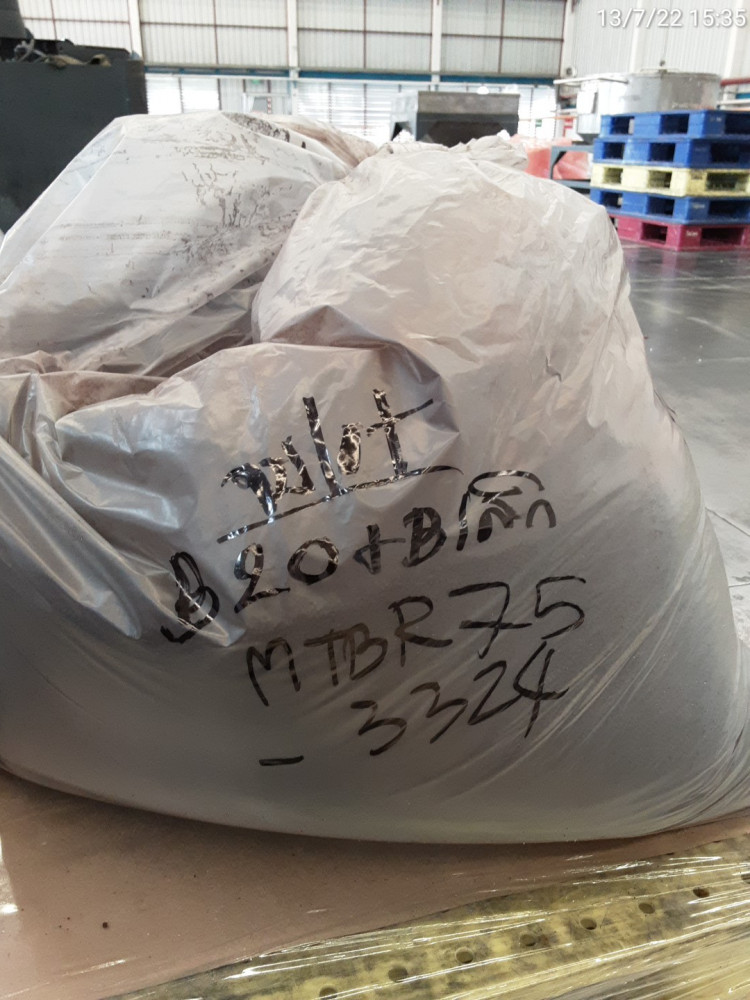 13/7/22 15:35
B20+B
MTBR75
- 3324